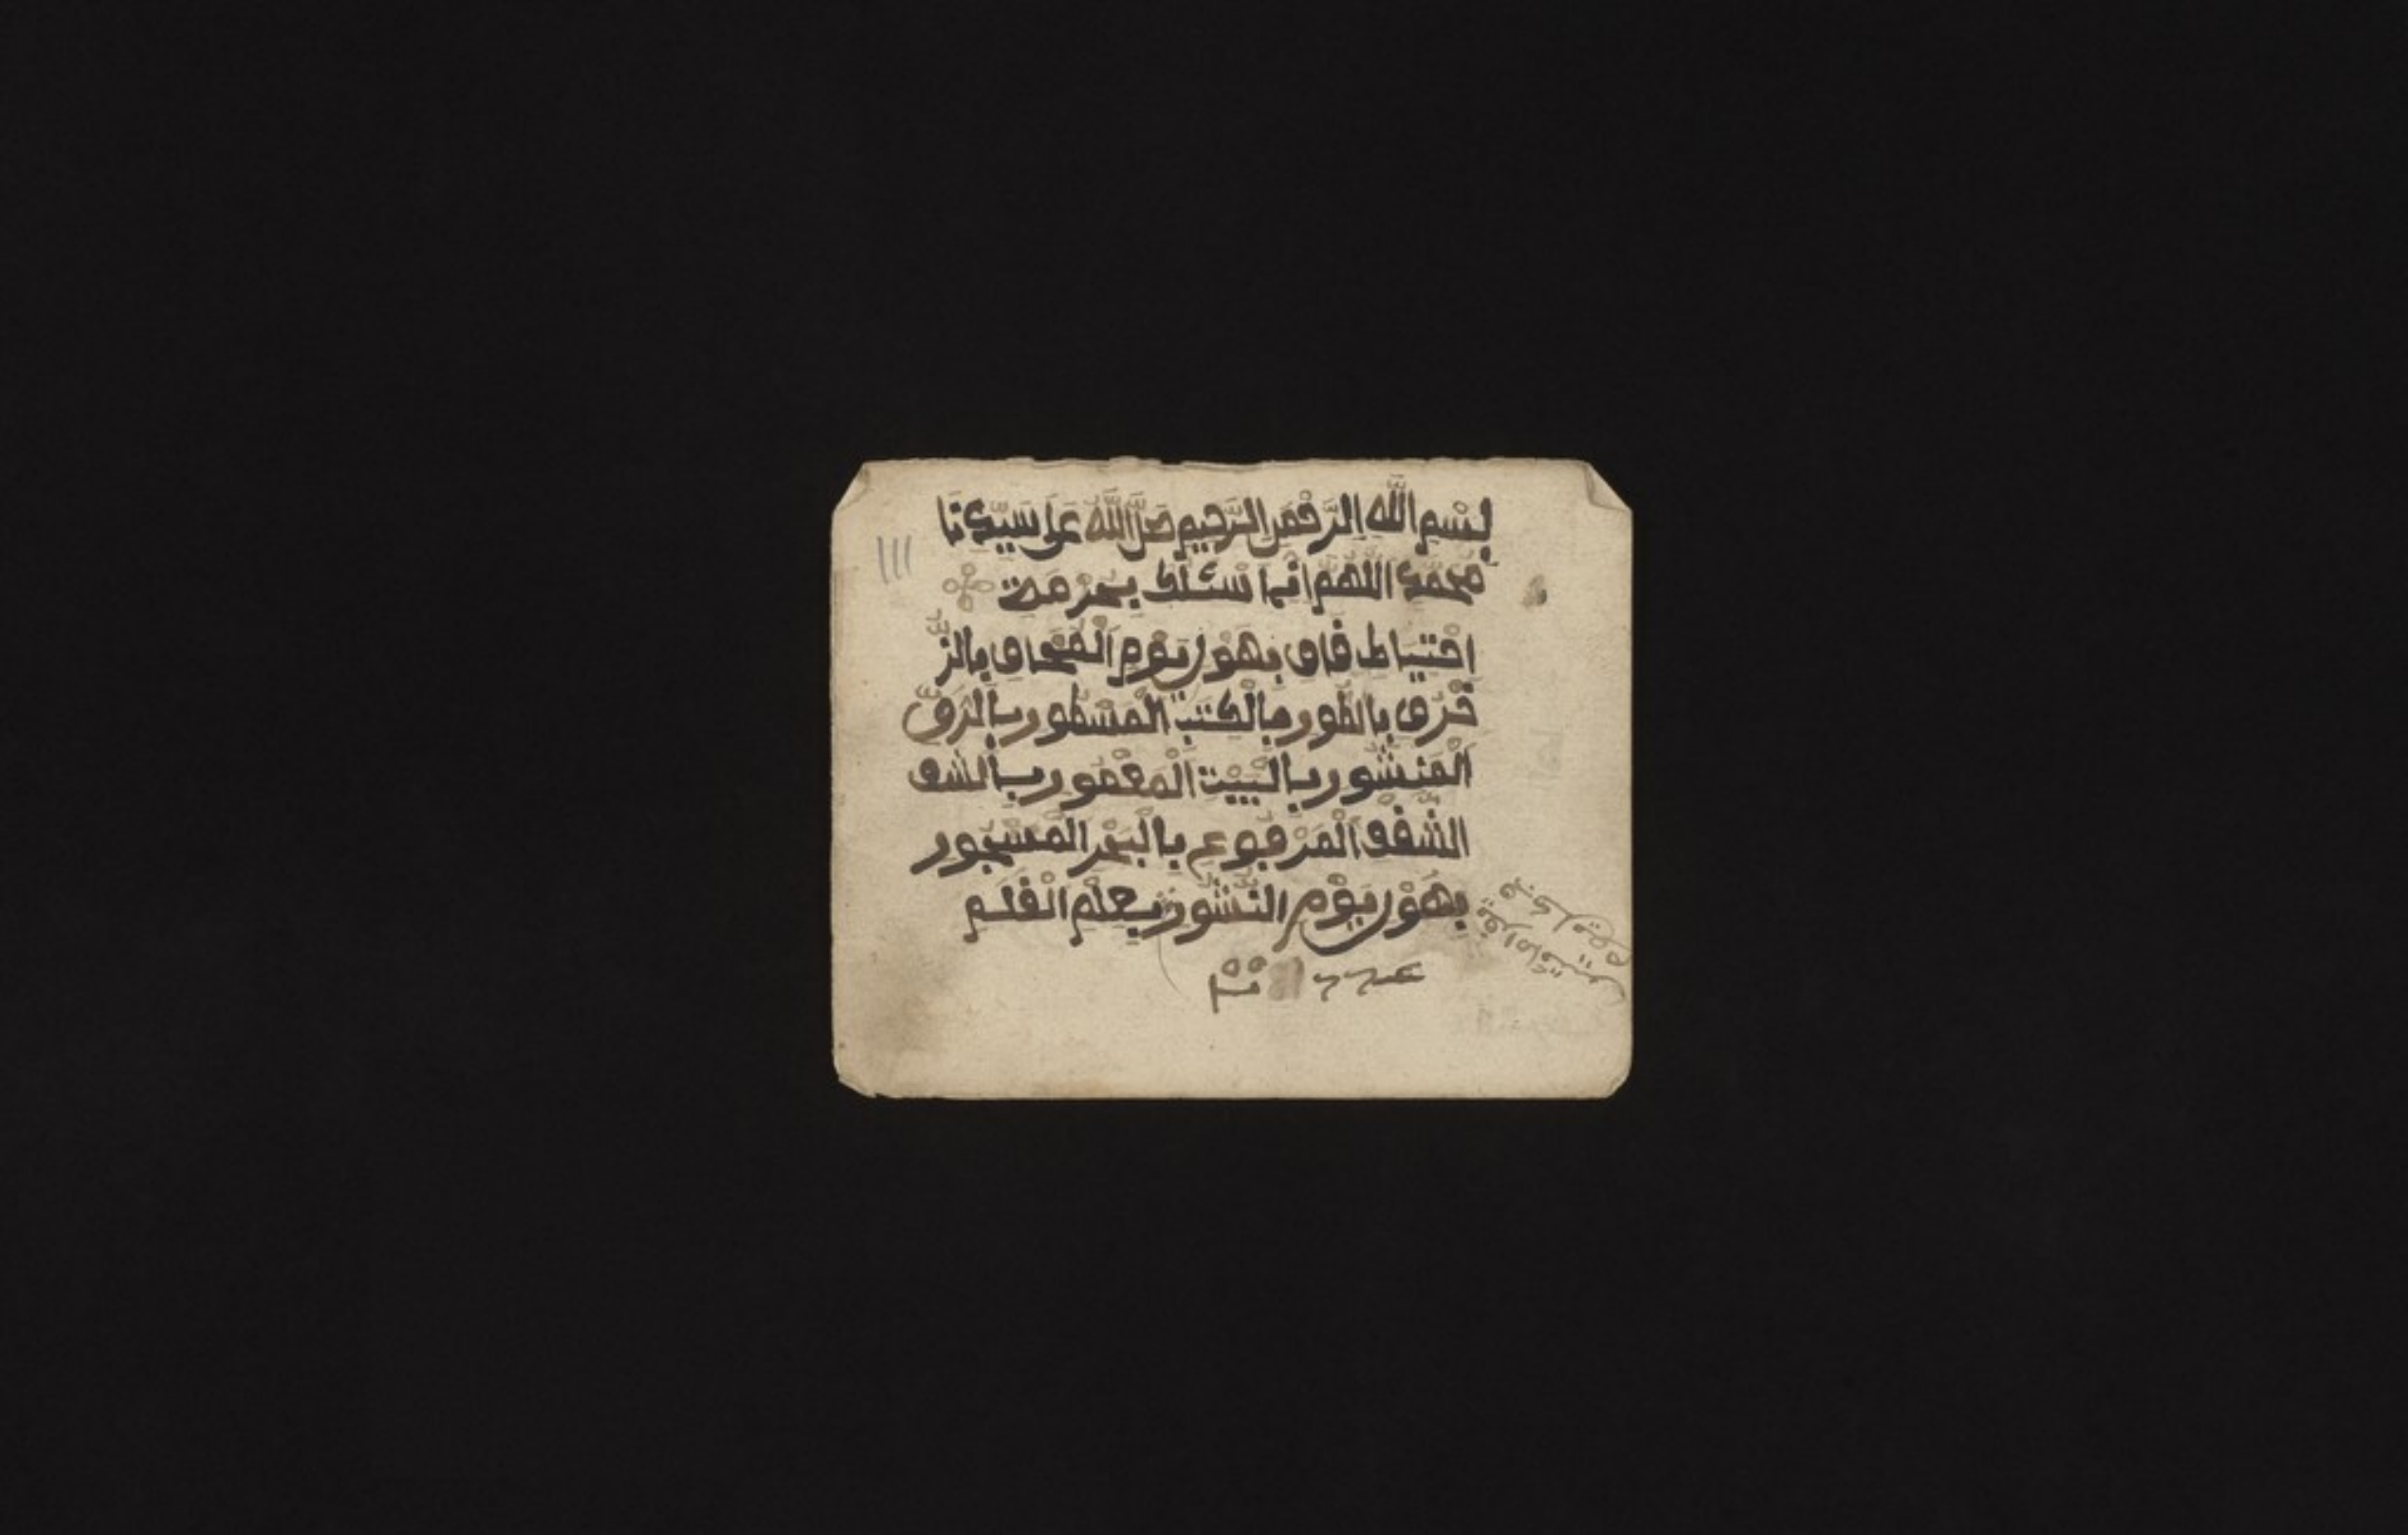 بِسْمِ اللَّهِ الرَّحْمَنِ الرَّحِيمِ صَلَّى اللَّهُ عَلَى سَيِّدِنَا
مُحَمَّدٍ اللَّهُمَّ إنِّي أسْئَلُكَ بِحُرْمَةِ
احْتِيَاطِ قَافٍ بِهَوْلِ يَوْمِ الْمُحَاقِ بِالزُّ
خْرُفِ بِالطُّورِ بِالْكِتَبِ الْمَسْطُورِ بِالرَّقِّ
الْمَنْشُورِ بِالْبَيْتِ الْمَعْمُورِ بِالسقف
السَّقْفِ الْمَرْفُوعِ بِالْبَحْرِ الْمَسْجُورِ
بِهَوْلِ يَوْمِ النُّشُورِ بِعِلْمِ الْقَلَمِ